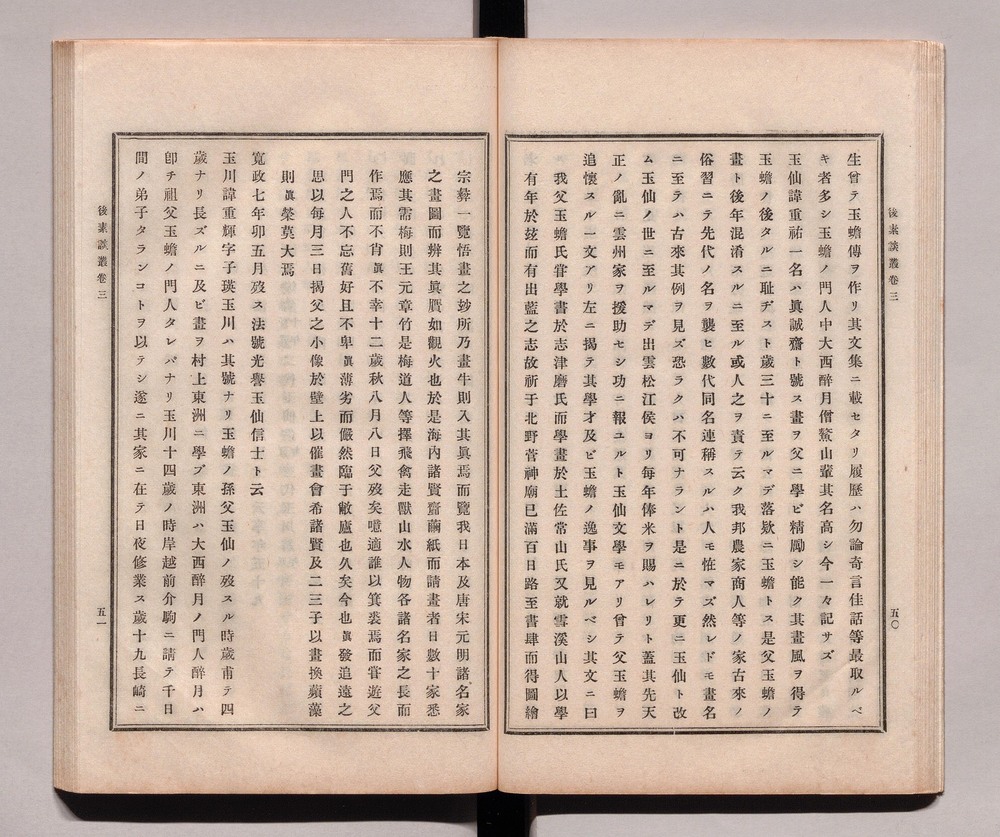 後素談叢卷三
五〇
生曾テ玉蟾傳ヲ作リ其文集ニ載セタリ履歷ハ勿論奇言佳話等最取ルベ
キ者多シ玉蟾ノ門人中大西醉月僧鰲山輩其名高シ今一々記サズ
玉仙諱重祐一名ハ眞誠齋ト號ス畫ヲ父ニ學ビ精勵シ能ク其畫風ヲ得テ
玉蟾ノ後タルニ耻ヂスト歲三十ニ至ルマデ落欵ニ玉蟾トス是父玉蟾ノ
畫ト後年混淆スルニ至ル或人之ヲ責テ云ク我邦農家商人等ノ家古來ノ
俗習ニテ先代ノ名ヲ襲ヒ數代同名連稱スルハ人モ恠マズ然レドモ畫名
ニ至テハ古來其例ヲ見ズ恐ラクハ不可ナラント是ニ於テ更ニ玉仙ト改
ム玉仙ノ世ニ至ルマデ出雲松江侯ヨリ每年俸米ヲ賜ハレリト蓋其先天
正ノ亂ニ雲州家ヲ援助セシ功ニ報ユルト玉仙文學モアリ曾テ父玉蟾ヲ
追懷スル一文アリ左ニ揭テ其學才及ビ玉蟾ノ逸事ヲ見ルベシ其文ニ曰
我父玉蟾氏甞學書於志津磨氏而學畫於土佐常山氏又就雲溪山人以學
有年於玆而有出藍之志故祈于北野菅神廟已滿百日路至書肆而得圖繪
宗彜一覽悟畫之玅所乃畫牛則入其眞焉而覽我日本及唐宋元明諸名家
之畫圖而辨其眞贋如觀火也於是海內諸賢齎繭紙而請畫者日數十家悉
應其需梅則王元章竹是梅道人等擇飛禽走獸山水人物各諸名家之長而
作焉而不肖眞不幸十二歲秋八月八日父歿矣噫適誰以箕裘焉而甞遊父
門之人不忘舊好且不卑眞薄劣而儼然臨于敝廬也久矣今也眞發追遠之
思以每月三日揭父之小像於壁上以催畫會希諸賢及二三子以畫換蘋藻
則眞榮莫大焉
寬政七年卯五月歿ス法號光譽玉仙信士ト云
玉川諱重輝字子瑛玉川ハ其號ナリ玉蟾ノ孫父玉仙ノ歿スル時歲甫テ四
歲ナリ長ズルニ及ビ畫ヲ村上東洲ニ學ブ東洲ハ大西醉月ノ門人醉月ハ
卽チ祖父玉蟾ノ門人タレバナリ玉川十四歲ノ時岸越前介駒ニ請テ千日
間ノ弟子タランコトヲ以テシ遂ニ其家ニ在テ日夜修業ス歲十九長崎ニ
後素談叢卷三
五一